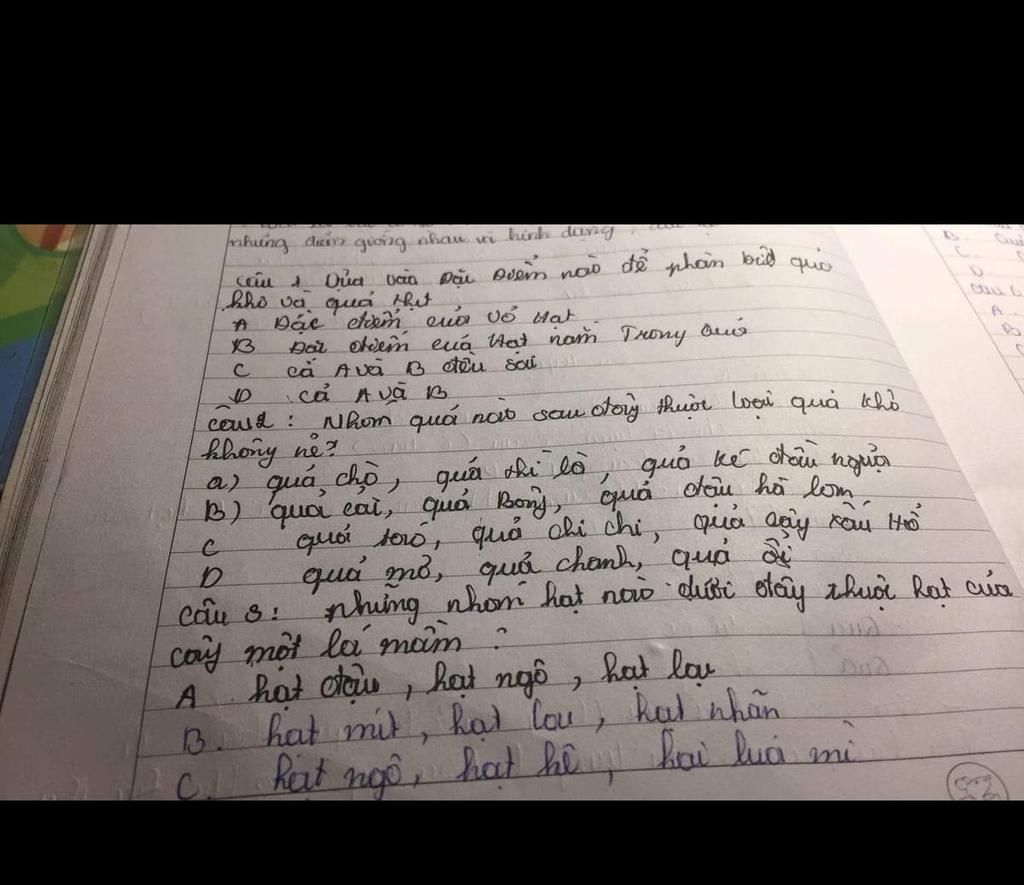 những điểm giống nhau về hình dạng
câu 1 Dựa vào Đặc Điểm nào để phân biệt quả
khô và quả thịt
A Đặc điểm của vỏ Hạt
B Đặc điểm của Hạt nằm Trong Quả
C cả A và B đều sai
D cả A và B
câu 2 : Nhóm quả nào sau đây thuộc loại quả khô
không nẻ?
a) quả chò, quả thì là, quả ké đầu ngựa
B) quả cải, quả Bông, quả đậu hà lan
C quả táo, quả chi chi, quả cây xấu Hổ
D quả mơ, quả chanh, quả ổi
câu 3: những nhóm hạt nào dưới đây thuộc hạt của
cây một lá mầm ?
A hạt đậu, hạt ngô, hạt lạc
B. hạt mít, hạt lau, hạt nhãn
C. hạt ngô, hạt kê, hai luá mì